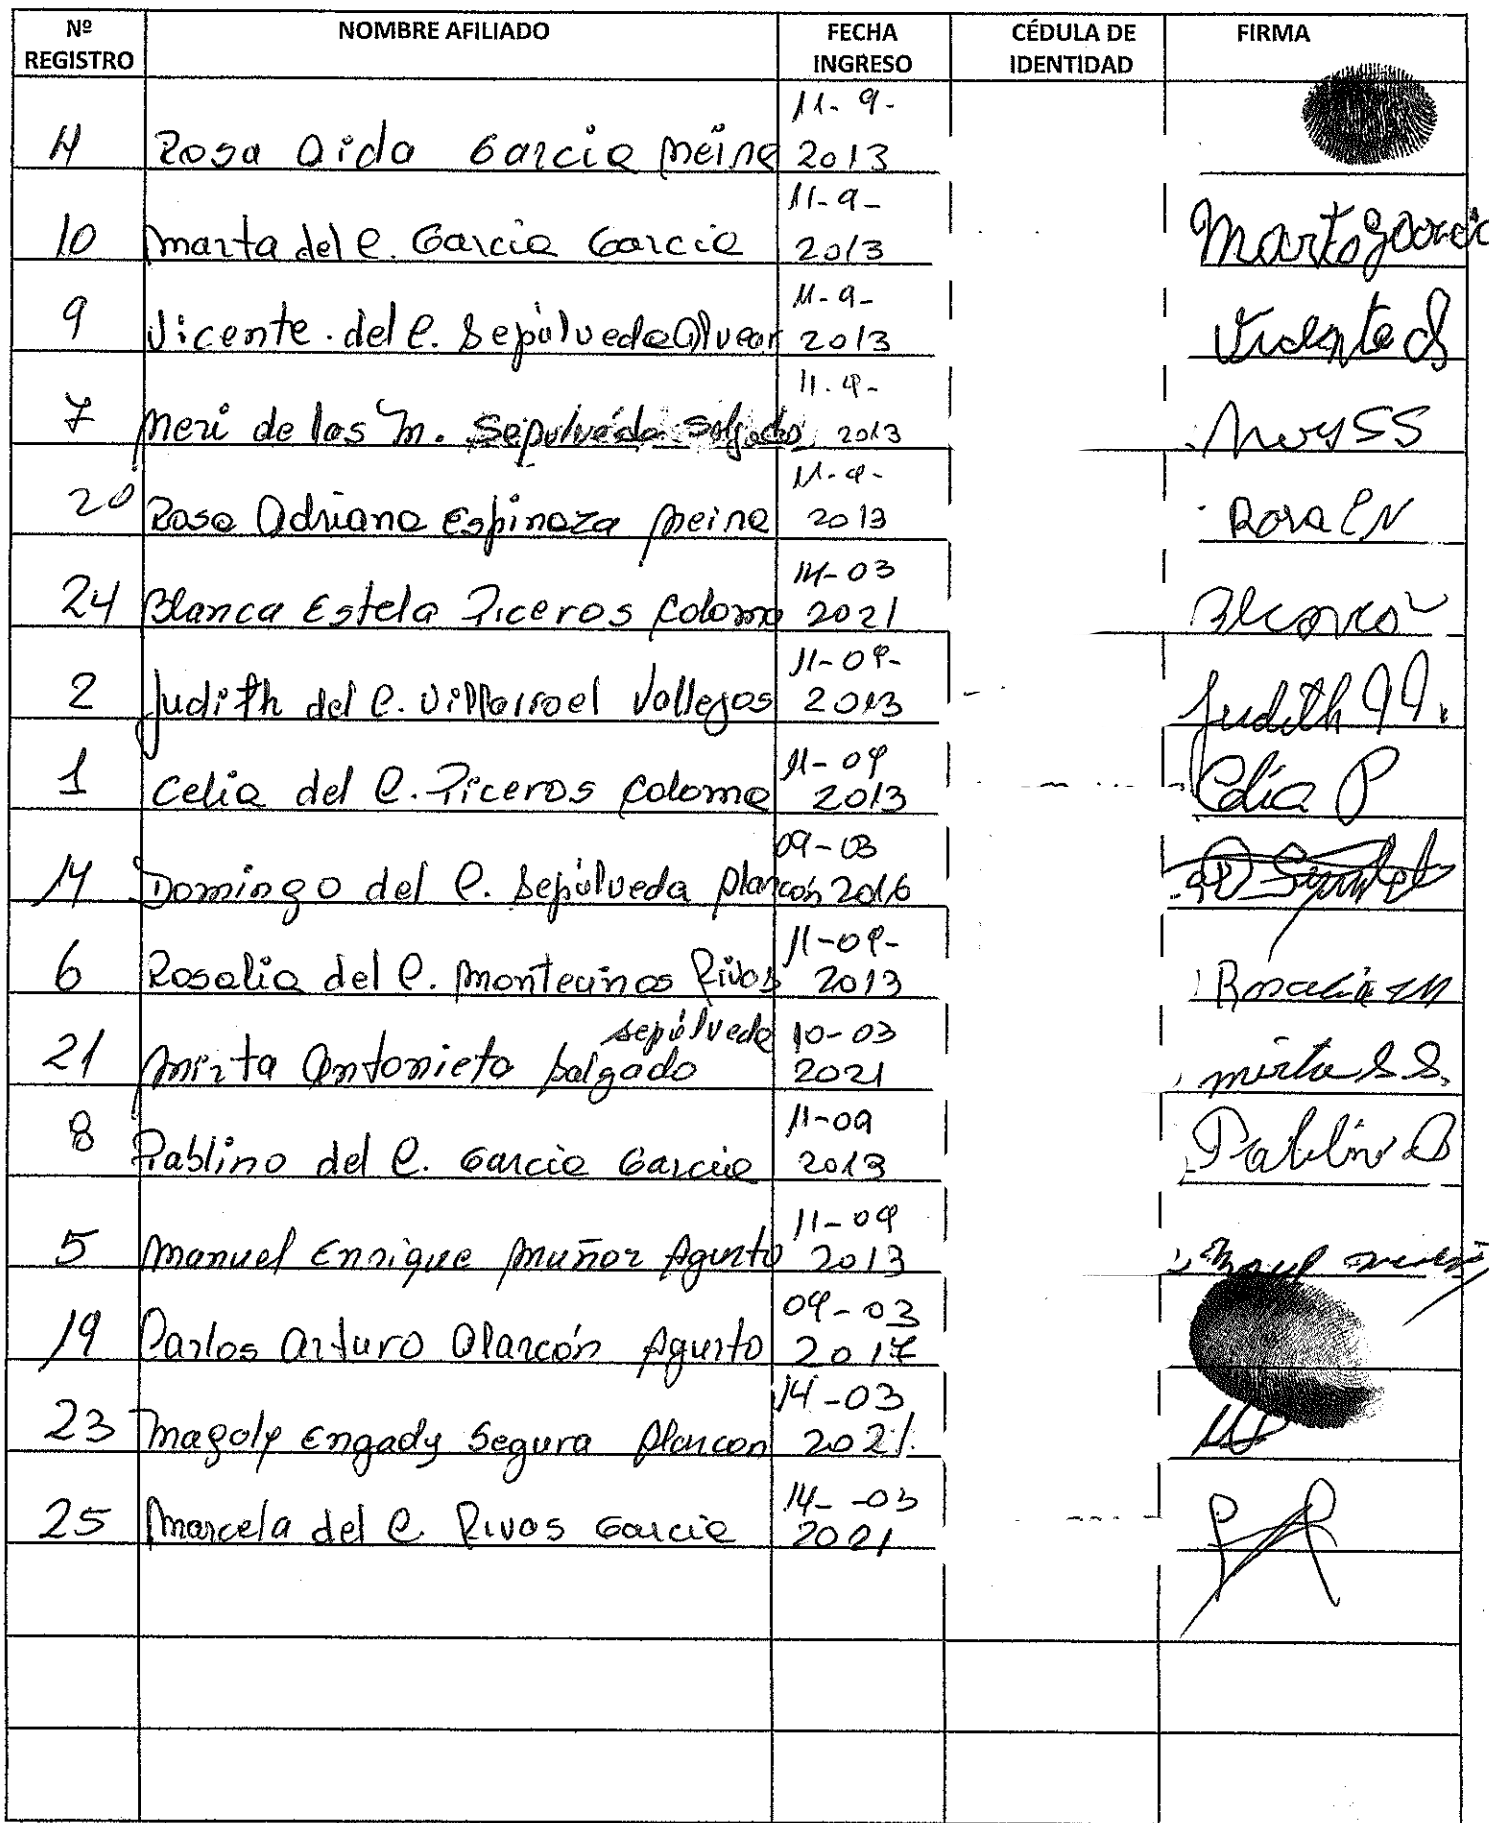 Nº REGISTRO NOMBRE AFILIADO FECHA INGRESO CÉDULA DE IDENTIDAD FIRMA
4 Rosa Aida Garcia Neira 11-9-2013
10 Marta del C. Garcia Garcia 11-9-2013 Marta Garcia
9 Vicente del C. Sepúlveda Alvear 11-9-2013 Vicente S
7 Meri de las M. Sepulvéda Salgado 11-9-2013 Mery SS
20 Rosa Adriana Espinoza Neira 11-9-2013 Rosa EN
24 Blanca Estela Piceros Coloma 14-03 2021 Blanca
2 Judith del C. Villarroel Vallejos 11-09-2013 Judith VV.
1 Celia del C. Piceros Coloma 11-09 2013 Celia P
14 Domingo del C. Sepúlveda Alarcón 09-03 2016
6 Rosalia del C. Montecinos Rivas 11-09-2013 Rosalia M
21 Mirta Antonieta Sepúlveda Salgado 10-03 2021 Mirta S.S.
8 Pablino del C. Garcia Garcia 11-09 2013 Pablino
5 Manuel Enrique Muñoz Agurto 11-09 2013
19 Carlos Arturo Alarcón Agurto 09-03 2017
23 Magaly Engady Segura Alarcon 14-03 2021.
25 Marcela del C. Rivas Garcia 14-03 2021